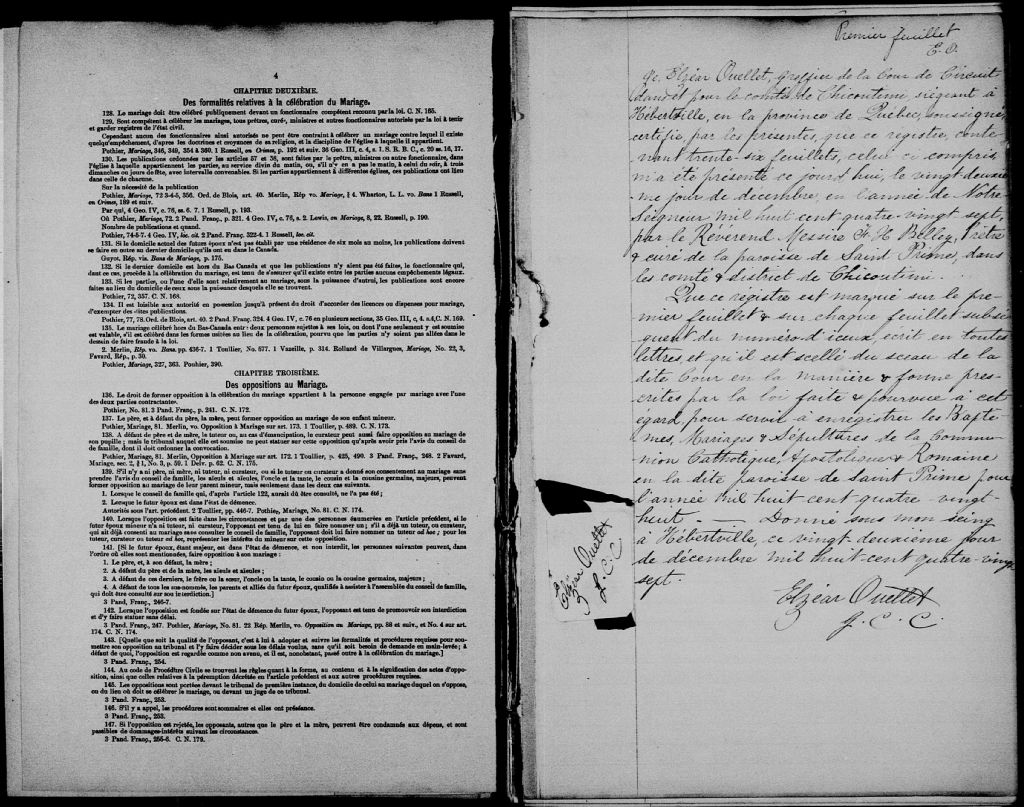 4
CHAPITRE DEUXIÈME.
Des formalités relatives à la célébration du Mariage.
128. Le mariage doit être célébré publiquement devant un fonctionnaire compétent reconnu par la loi. C. N. 165.
129. Sont compétents à célébrer les mariages, tous prêtres, curés, ministres et autres fonctionnaires autorisés par la loi à tenir
et garder registres de l'état civil.
Cependant aucun des fonctionnaires ainsi autorisés ne peut être contraint à célébrer un mariage contre lequel il existe
quelqu'empêchement, d'après les doctrines et croyances de sa religion, et la discipline de l'église à laquelle il appartient.
Pothier, Mariage, 346, 349, 354 à 360. 1 Russell, on Crimes, p. 192 et suiv. 36 Geo. III, c. 4, s. 1. S. R. B. C., c. 20 ss. 16, 17.
130. Les publications ordonnées par les articles 57 et 58, sont faites par le prêtre, ministre ou autre fonctionnaire, dans
l'église à laquelle appartiennent les parties, au service divin du matin, ou, s'il n'y en a pas le matin, à celui du soir, à trois
dimanches ou jours de fête, avec intervalles convenables. Si les parties appartiennent à différentes églises, ces publications ont lieu
dans celle de chacune.
Sur la nécessité de la publication
Pothier, Mariage, 72 3-4-5, 356. Ord. de Blois, art. 40. Merlin, Rép vo. Mariage, § 4. Wharton, L. L. vo. Bans 1 Russell,
on Crimes, 189 et suiv.
Par qui, 4 Geo. IV, c. 76, ss. 6. 7. 1 Russell, p. 193.
Où Pothier, Mariage, 72. 2 Pand. Franç., p. 321. 4 Geo. IV, c. 76, s. 2. Lewis, on Mariage, 8, 22. Russell, p. 190.
Nombre de publications et quand.
Pothier, 74-5-7. 4 Geo. IV, loc. cit. 2 Pand. Franç. 322-4. 1 Russell, loc. cit.
131. Si le domicile actuel des futurs époux n'est pas établi par une résidence de six mois au moins, les publications doivent
se faire en outre au dernier domicile qu'ils ont eu dans le Canada.
Guyot, Rép. vis. Bans de Mariage, p. 175.
132. Si le dernier domicile est hors du Bas Canada et que les publications n'y aient pas été faites, le fonctionnaire qui,
dans ce cas, procède à la célébration du mariage, est tenu de s'assurer qu'il existe entre les parties aucuns empêchements légaux.
133. Si les parties, ou l'une d'elle sont relativement au mariage, sous la puissance d'autrui, les publications sont encore
faites au lieu du domicile de ceux sous la puissance desquels elle se trouvent.
Pothier, 72, 357. C. N. 168.
134. Il est loisible aux autorité en possession jusqu'à présent du droit d'accorder des licences ou dispenses pour mariage,
d'exempter des dites publications.
Pothier, 77, 78. Ord. de Blois, art. 40. 2 Pand. Franç. 324. 4 Geo. IV, c. 76 en plusieurs sections, 35 Geo. III, c, 4. s. 6, C. N. 169.
135. Le mariage célébré hors du Bas-Canada entre deux personnes sujettes à ses lois, ou dont l'une seulement y est soumise
est valable, s'il est célébré dans les formes usitées au lieu de la célébration, pourvu que les parties n'y soient pas allées dans le
dessein de faire fraude à la loi.
2. Merlin, Rép. vo. Bans. pp. 436-7. 1 Toullier, No. 577. 1 Vazeille, p. 314. Rolland de Villargues, Mariage, No. 22, 3,
Favard, Rép., p. 30.
Pothier, Mariage, 327, 363. Pothier, 390.
CHAPITRE TROISIÈME.
Des oppositions au Mariage.
136. Le droit de former opposition à la célébration du mariage appartient à la personne engagée par mariage avec l'une
des deux parties contractantes.
Pothier, No. 81. 2 Pand. Franç., p. 241. C. N. 172.
137. Le père, et à défaut du père, la mère, peut former opposition au mariage de son enfant mineur.
Pothier, Mariage, 81. Merlin, vo. Opposition à Mariage sur art. 173. 1 Toullier, p. 489. C. N. 173.
138. A défaut de père et de mère, le tuteur ou, au cas d'émancipation, le curateur peut aussi faire opposition au mariage de
son pupille ; mais le tribunal auquel elle est soumise ne peut statuer sur cette opposition qu'après avoir pris l'avis du conseil de
famille, dont il doit ordonner la convocation.
Pothier, Mariage, 81. Merlin, Opposition à Mariage sur art. 172. 1 Toullier, p. 425, 490. 3 Pand. Franç., 248. 2 Favard,
Mariage, sec. 2, § 1, No. 3, p. 59. 1 Delv. p. 62. C. N. 175.
139. S'il n'y a ni père, ni mère, ni tuteur, ni curateur, ou si le tuteur ou curateur a donné son consentement au mariage sans
prendre l'avis du conseil de famille, les aïeuls et aïeules, l'oncle et la tante, le cousin et la cousine germains, majeurs, peuvent
former opposition au mariage de leur parent mineur, mais seulement dans les deux cas suivants.
1. Lorsque le conseil de famille qui, d'après l'article 122, aurait dû être consulté, ne l'a pas été ;
2. Lorsque le futur époux est dans l'état de démence.
Autorités sous l'art. précédent. 2 Toullier, pp. 446-7. Pothier, Mariage, No. 81. C. N. 174.
140. Lorsque opposition est faite dans les circonstances et par une des personnes énumérées en l'article précédent, si le
futur époux mineur n'a ni tuteur, ni curateur, l'opposant est tenu de lui en faire nommer un ; s'il a déjà un tuteur, ou curateur,
qui ait déjà consenti au mariage sans consulter le conseil de famille, l'opposant doit lui faire nommer un tuteur ad hoc ; pour les
tuteur, curateur ou tuteur ad hoc, représenter les intérêts du mineur sur cette opposition.
141. [Si le futur époux, étant majeur, est dans l'état de démence, et non interdit, les personnes suivantes peuvent, dans
l'ordre où elles sont mentionnées, faire opposition à son mariage :
1. Le père, et, à son défaut, la mère ;
2. A défaut du père et de la mère, les aïeuls et aïeules ;
3. A défaut de ces derniers, le frère ou la sœur, l'oncle ou la tante, le cousin ou la cousine germains, majeurs ;
4. A défaut de tous les sus-nommés, les parents et alliés du futur époux, qualifiés à assister à l'assemblée du conseil de famille,
qui doit être consulté sur son interdiction.]
3 Pand. Franç., 246-7.
142. Lorsque l'opposition est fondée sur l'état de démence du futur époux, l'opposant est tenu de promouvoir son interdiction
et d'y faire statuer sans délai.
3 Pand. Franç., 247. Pothier, Mariage, No. 81. 22 Rép. Merlin, vo. Opposition au Mariage, pp. 88 et suiv., et No. 4 sur art.
174. C. N. 174.
143. [Quelque que soit la qualité de l'opposant, c'est à lui à adopter et suivre les formalités et procédures requises pour sou-
mettre son opposition au tribunal et l'y faire décider sous les délais voulus, sans qu'il soit besoin de demande en main-levée ; à
défaut de quoi, l'opposition est regardée comme non avenue, et il est, nonobstant, passé outre à la célébration du mariage.]
3 Pand. Franç., 254.
144. Au code de Procédure Civile se trouvent les règles quant à la forme, au contenu et à la signification des actes d'oppo-
sition, ainsi que celles relatives à la péremption décrétée en l'article précédent et aux autres procédures requises.
145. Les oppositions sont portées devant le tribunal de première instance, du domicile de celui au mariage duquel on s'oppose,
ou du lieu où doit se célébrer le mariage, ou devant un juge de ce tribunal.
3 Pand. Franç., 253.
146. S'il y a appel, les procédures sont sommaires et elles ont préséance.
3 Pand. Franç., 253.
147. Si l'opposition est rejetée, les opposants, autres que le père et la mère, peuvent être condamnés aux dépens, et sont
passibles de dommages-intérêts suivant les circonstances.
3 Pand. Franç., 255-6. C. N. 179.
Premier feuillet
E. O.
Je, Elzéar Ouellet, greffier de la Cour de Circuit
dans & pour le comté de Chicoutimi siégeant à
Hébertville, en la province de Québec, soussigné,
certifie, par les presentes, que ce registre, conte-
nant trente-six feuillets, celui ci compris
m'a été présenté ce jourd'hui, le vingt deuxiè-
me jour de décembre, en l'année de Notre
Seigneur mil huit cent quatre-vingt sept,
par le Révérend Messire H. Belley, Prêtre
& curé de la paroisse de Saint Prime, dans
les comté & district de Chicoutimi.
Que ce régistre est marqué sur le pre-
mier feuillet & sur chaque feuillet subsé-
quent du numéro d'iceux, écrit en toutes
lettres, et qu'il est scellé du sceau de la
dite Cour en la manière & forme pres-
crites par la loi faite & pourvue à cet
égard, pour servir à enregistrer les Baptê-
mes, Mariages & Sépultures de la Commu-
nion Catholique, Apostolique & Romaine
en la dite paroisse de Saint Prime pour
l'année mil huit cent quatre vingt-
huit. — Donné sous mon seing
à Hébertville, ce vingt deuxième jour
de décembre mil huit cent quatre-vingt
sept.
Elzéar Ouellet
G. C. C.
Elzéar Ouellet
G. C. C.